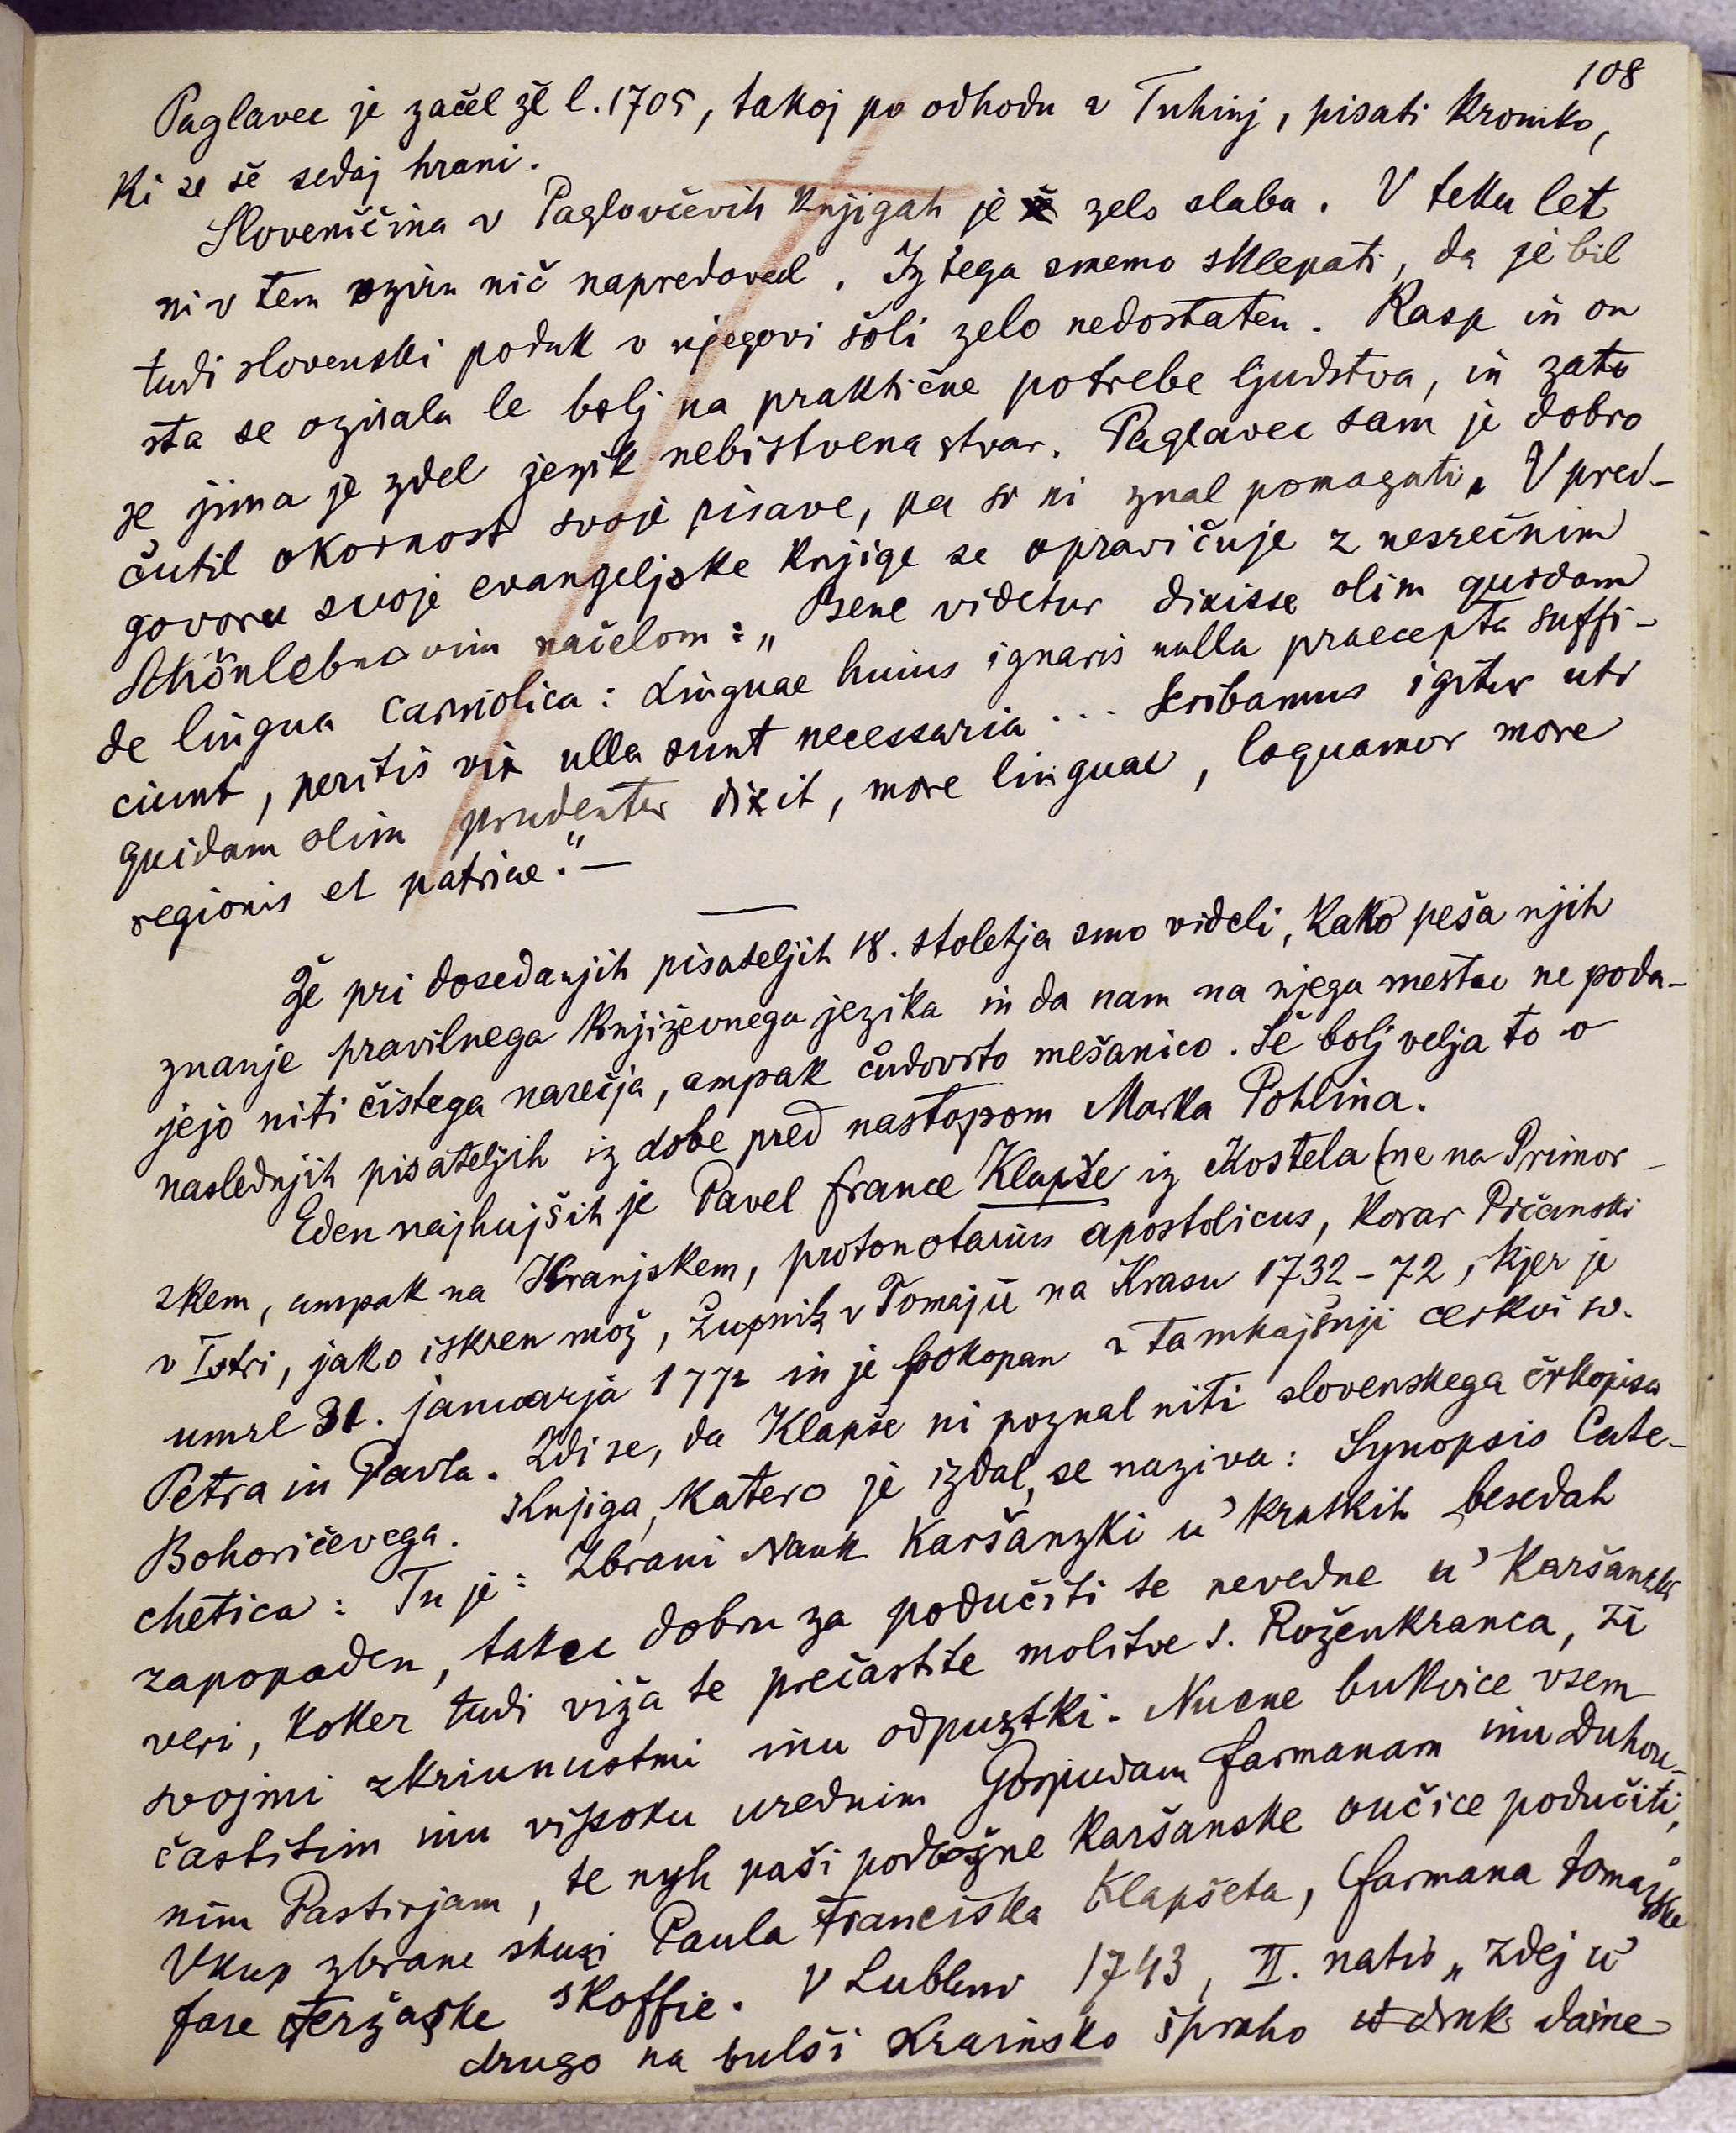 108
Paglavec je začel žē l. 1705, takoj po odhodu v Tuhinj, pisati kroniko,
ki se še sedaj hrani.
Slovenščina v Paglovčevih knjigah je zelo slaba. V teku let
ni v tem oziru nič napredoval. Iz tega smemo sklepati, da je bil
tudi slovenski poduk v njegovi šoli zelo nedostaten. Rasp in on
sta se ozirala le bolj na praktične potrebe ljudstva, in zato
se jima je zdel jezik nebistvena stvar. Paglavec sam je dobro
čutil okornost svoje pisave, pa si ni znal pomagati. V pred-
govoru svoje evangeljske knjige se opravičuje z nesrečnim
Schönlebnovim načelom: „Bene videtur dixisse olim quidam
de lingua carniolica: Linguae huius ignaris nulla praecepta suffi-
ciunt, peritis vix ulla sunt necessaria... Scribamus igitur uti
quidam olim prudenter dixit, more linguae, loquamur more
regionis et patriae.“ —
Že pri dosedanjih pisateljih 18. stoletja smo videli, kako peša njih
znanje pravilnega književnega jezika in da nam na njega mestu ne poda-
jejo niti čistega narečja, ampak čudovito mešanico. Še bolj velja to o
naslednjih pisateljih iz dobe pred nastopom Marka Pohlina.
Eden najhujših je Pavel France Klapše iz Kostela (ne na Primor-
skem, ampak na Kranjskem, protonotarius apostolicus, korar Pičanski
v Istri, jako iskren mož, župnik v Tomaju na Krasu 1732-72, kjer je
umrl 31. januarja 1772 in je pokopan v tamkajšnji cerkvi sv.
Petra in Pavla. Zdi se, da Klapše ni poznal niti slovenskega črkopisa
Bohoričevega. Knjiga, katero je izdal, se naziva: Synopsis Cate-
chetica: Tu je: Zbrani Nauk Karšanzki u' kratkih besedah
zapopaden, taku dobru za podučiti te nevedne u' Karšanzki
veri, koker tudi viža te prečastite molitve s. Roženkranca, zi
svojmi zkriunustmi inu odpuztki. Nucne bukvice vsem
častitim inu vissoku urednim Gospudam farmanam inu Duhou-
nim Pastirjam, te nyh paši podložne karšanske oučice podučiti,
Vkup zbrane skuzi Paula Franciska Klapšeta, farmana tomajske
fare teržaške skoffie. V Lublani 1743, II. natis „Zdej u'
drugo na bulši Krainsko šproho u druk daine